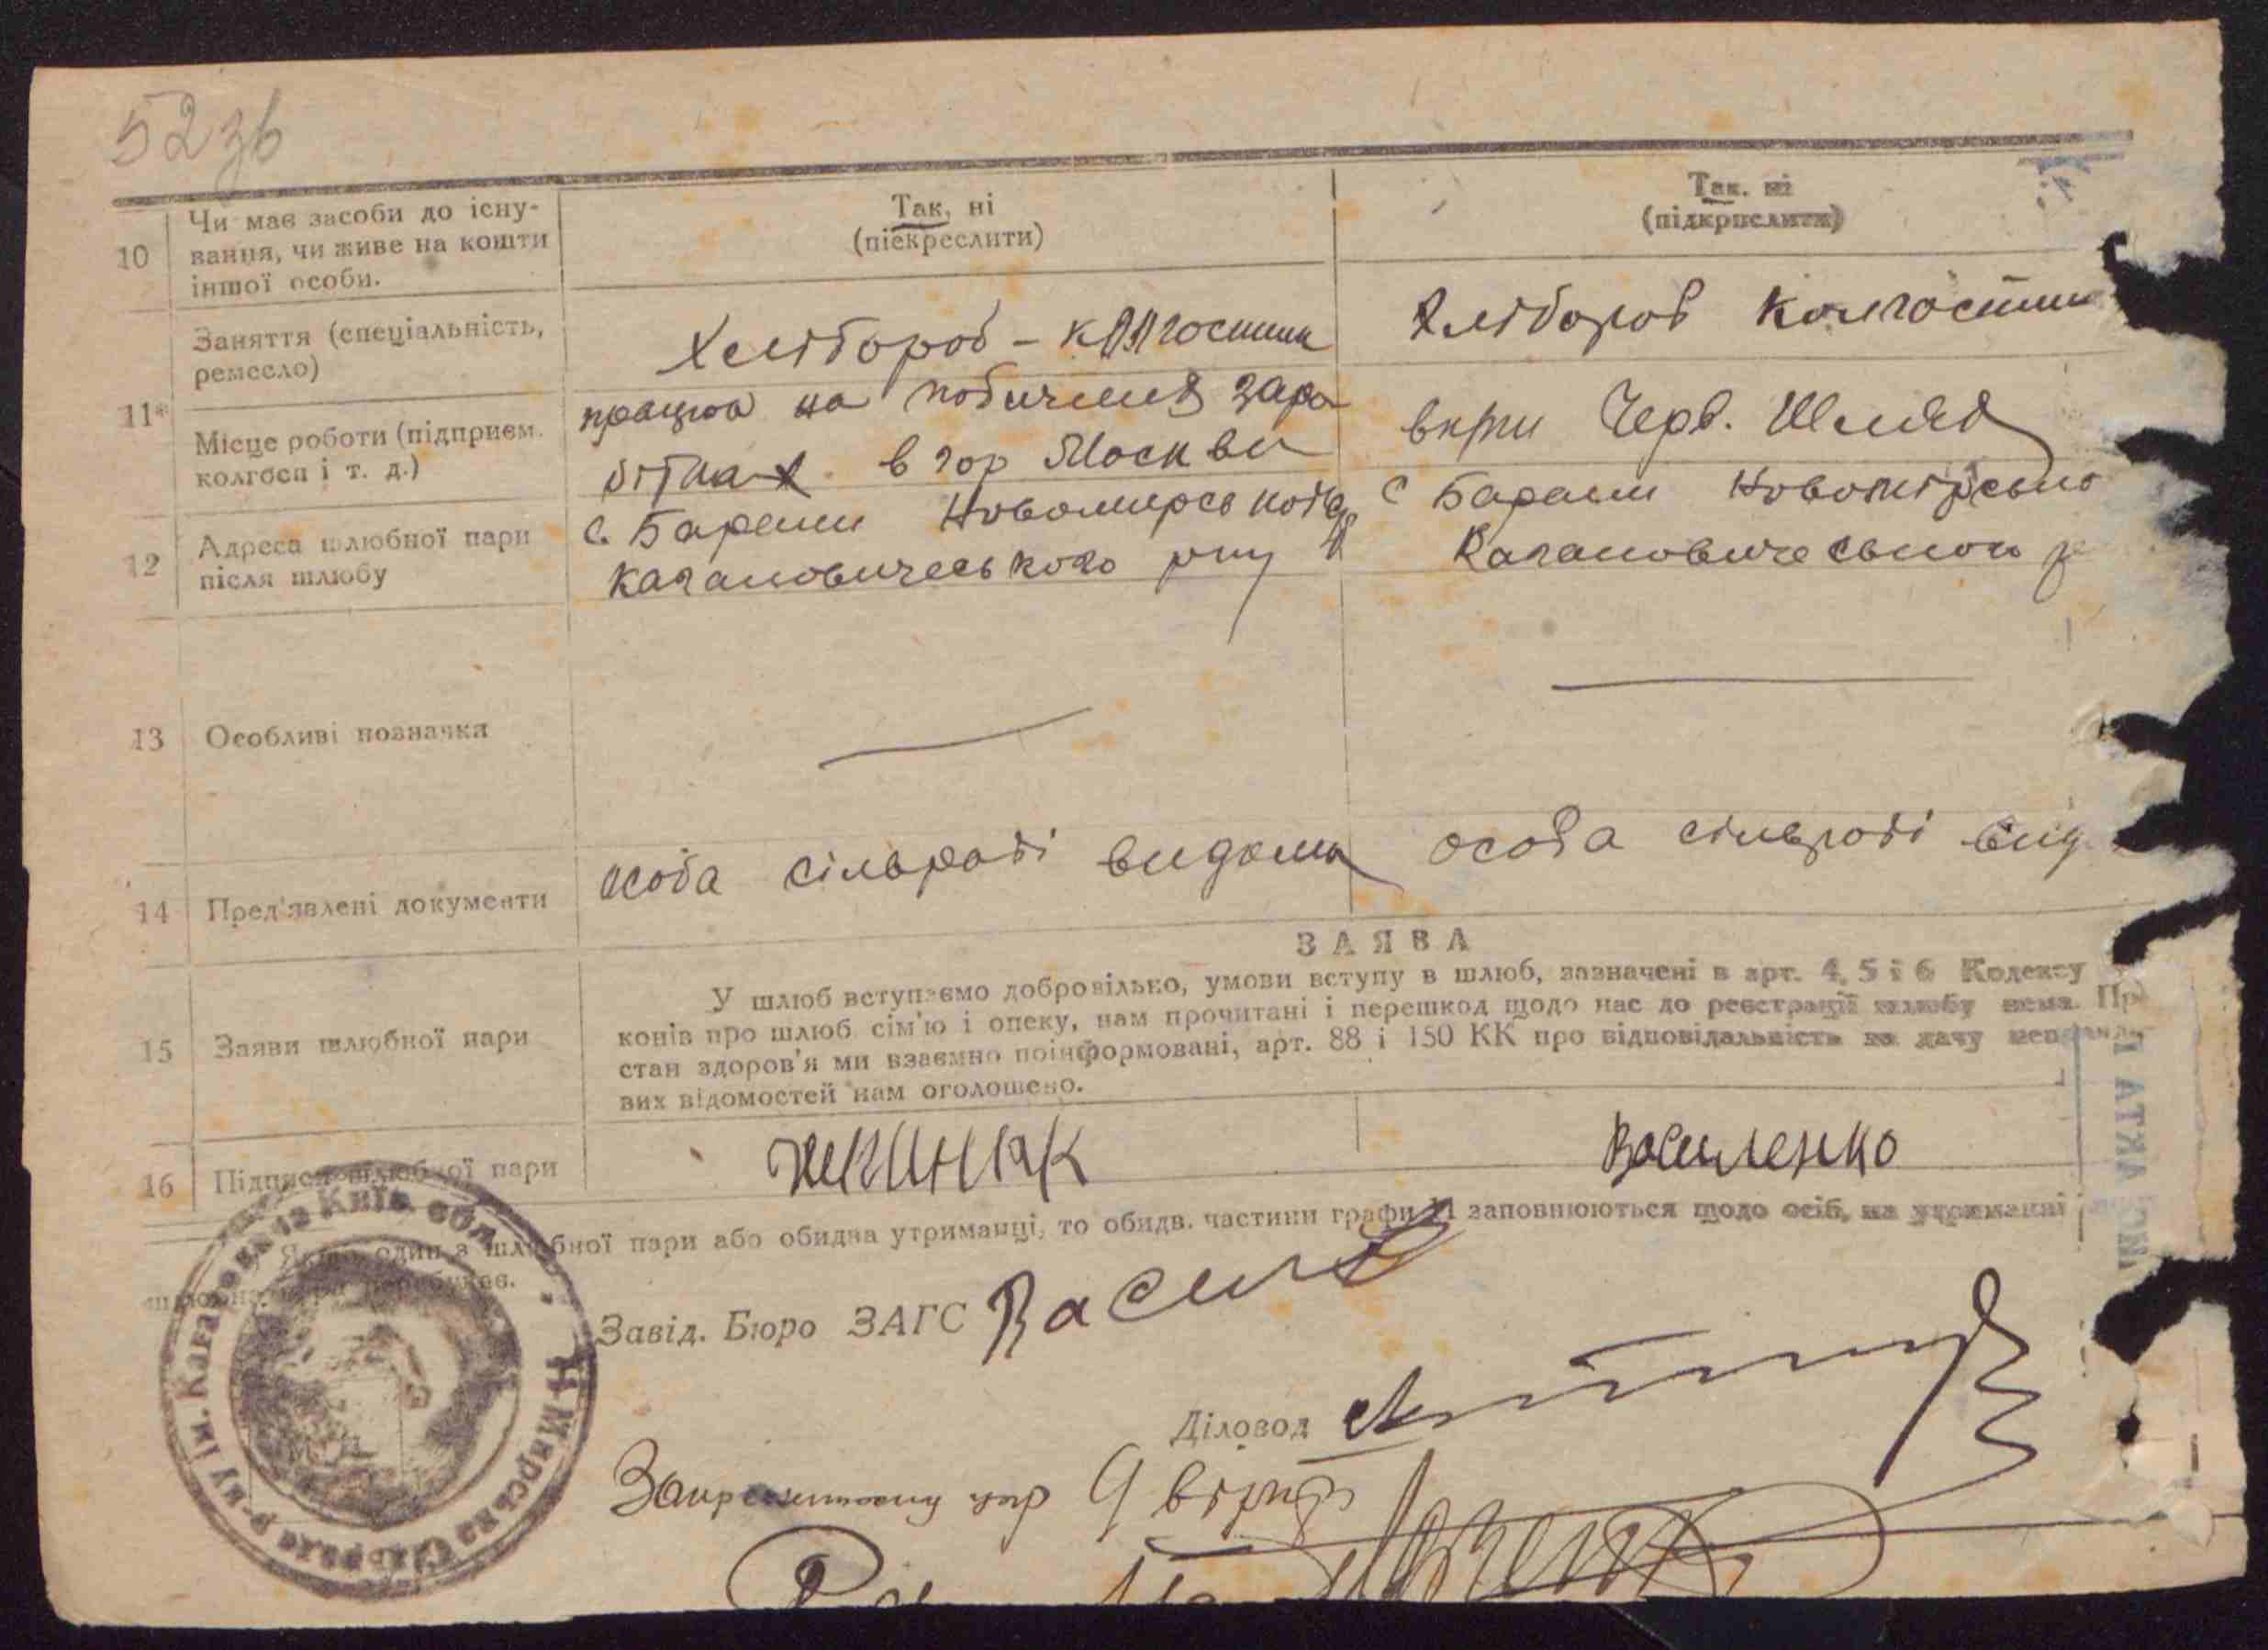 52 зв
Так, ні
(піекреслити)
Так. ні
(підкрислити)
10
Чи має засоби до існу-
вання, чи живе на кошти
іншої особи.
11*
Заняття (спеціальність,
ремесло)
Хлібороб - колгоспник
Хлібороб колгоспни
Місце роботи (підприєм.
колгосп і т. д.)
працює на побічних заро
бітках в гор Москви
Черв. Шлях
12
Адреса шлюбної пари
після шлюбу
с. Бараши Новомирської
Кагановичеського рну
с Бараши Новомірсько
Кагановичеського р
13
Особливі позначки
14
Пред'явлені документи
особа сільраді видома
особа сільраді вид
15
Заяви шлюбної пари
ЗАЯВА
У шлюб вступаємо добровільно, умови вступу в шлюб, зазначені в арт. 4, 5 і 6 Кодексу
конів про шлюб сім'ю і опеку, нам прочитані і перешкод щодо нас до реєстрації шлюбу нема. Пр
стан здоров'я ми взаємно поінформовані, арт. 88 і 150 КК про відповідальність за дачу неправди
вих відомостей нам оголошено.
16
Підписи шлюбної пари
Жигиняк
Василенко
Якщо один з шлюбної пари або обидва утриманці, то обидв. частини графи 11 заповнюються щодо осіб, на утриманні
шлюбна пара перебуває.
Завід. Бюро ЗАГС
Діловод
Н-Мирська Сільрада р-ну ім. Кагановича Київ. обл.